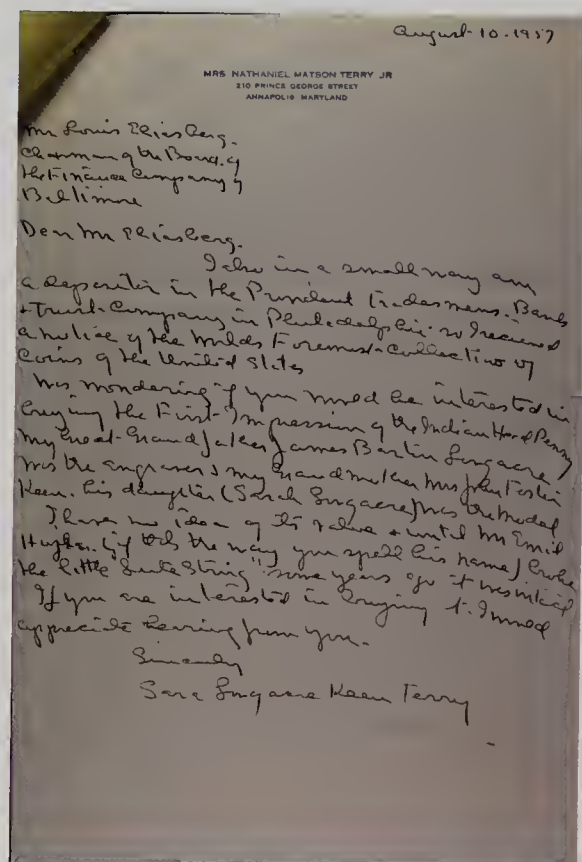 August 10. 1957
MRS NATHANIEL MATSON TERRY JR
210 PRINCE GEORGE STREET
ANNAPOLIS MARYLAND
Mr Louis Eliasberg.
Chairman of the Board. of
the Finance Company of
Baltimore
Dear Mr Eliasberg.
I also in a small way am
a depositor in the Provident Tradesmens. Bank
+ Trust-Company in Philadelphia. so I received
a notice of the Worlds Foremost-Collection of
Coins of the United States
Was wondering if you would be interested in
buying the First-Impression of the Indian Head Penny
my Great-Grandfather James Barton Longacre
was the engraver & my Grandmother Mrs John Foster
Keen. his daughter (Sarah Longacre) was the model
I have no idea of its value + until Mr Emil
the way you spell his name) broke
the little "some years ago it was intact
If you are interested in buying it. I would
appreciate hearing from you.
Sincerely
Sara Longacre Keen Terry